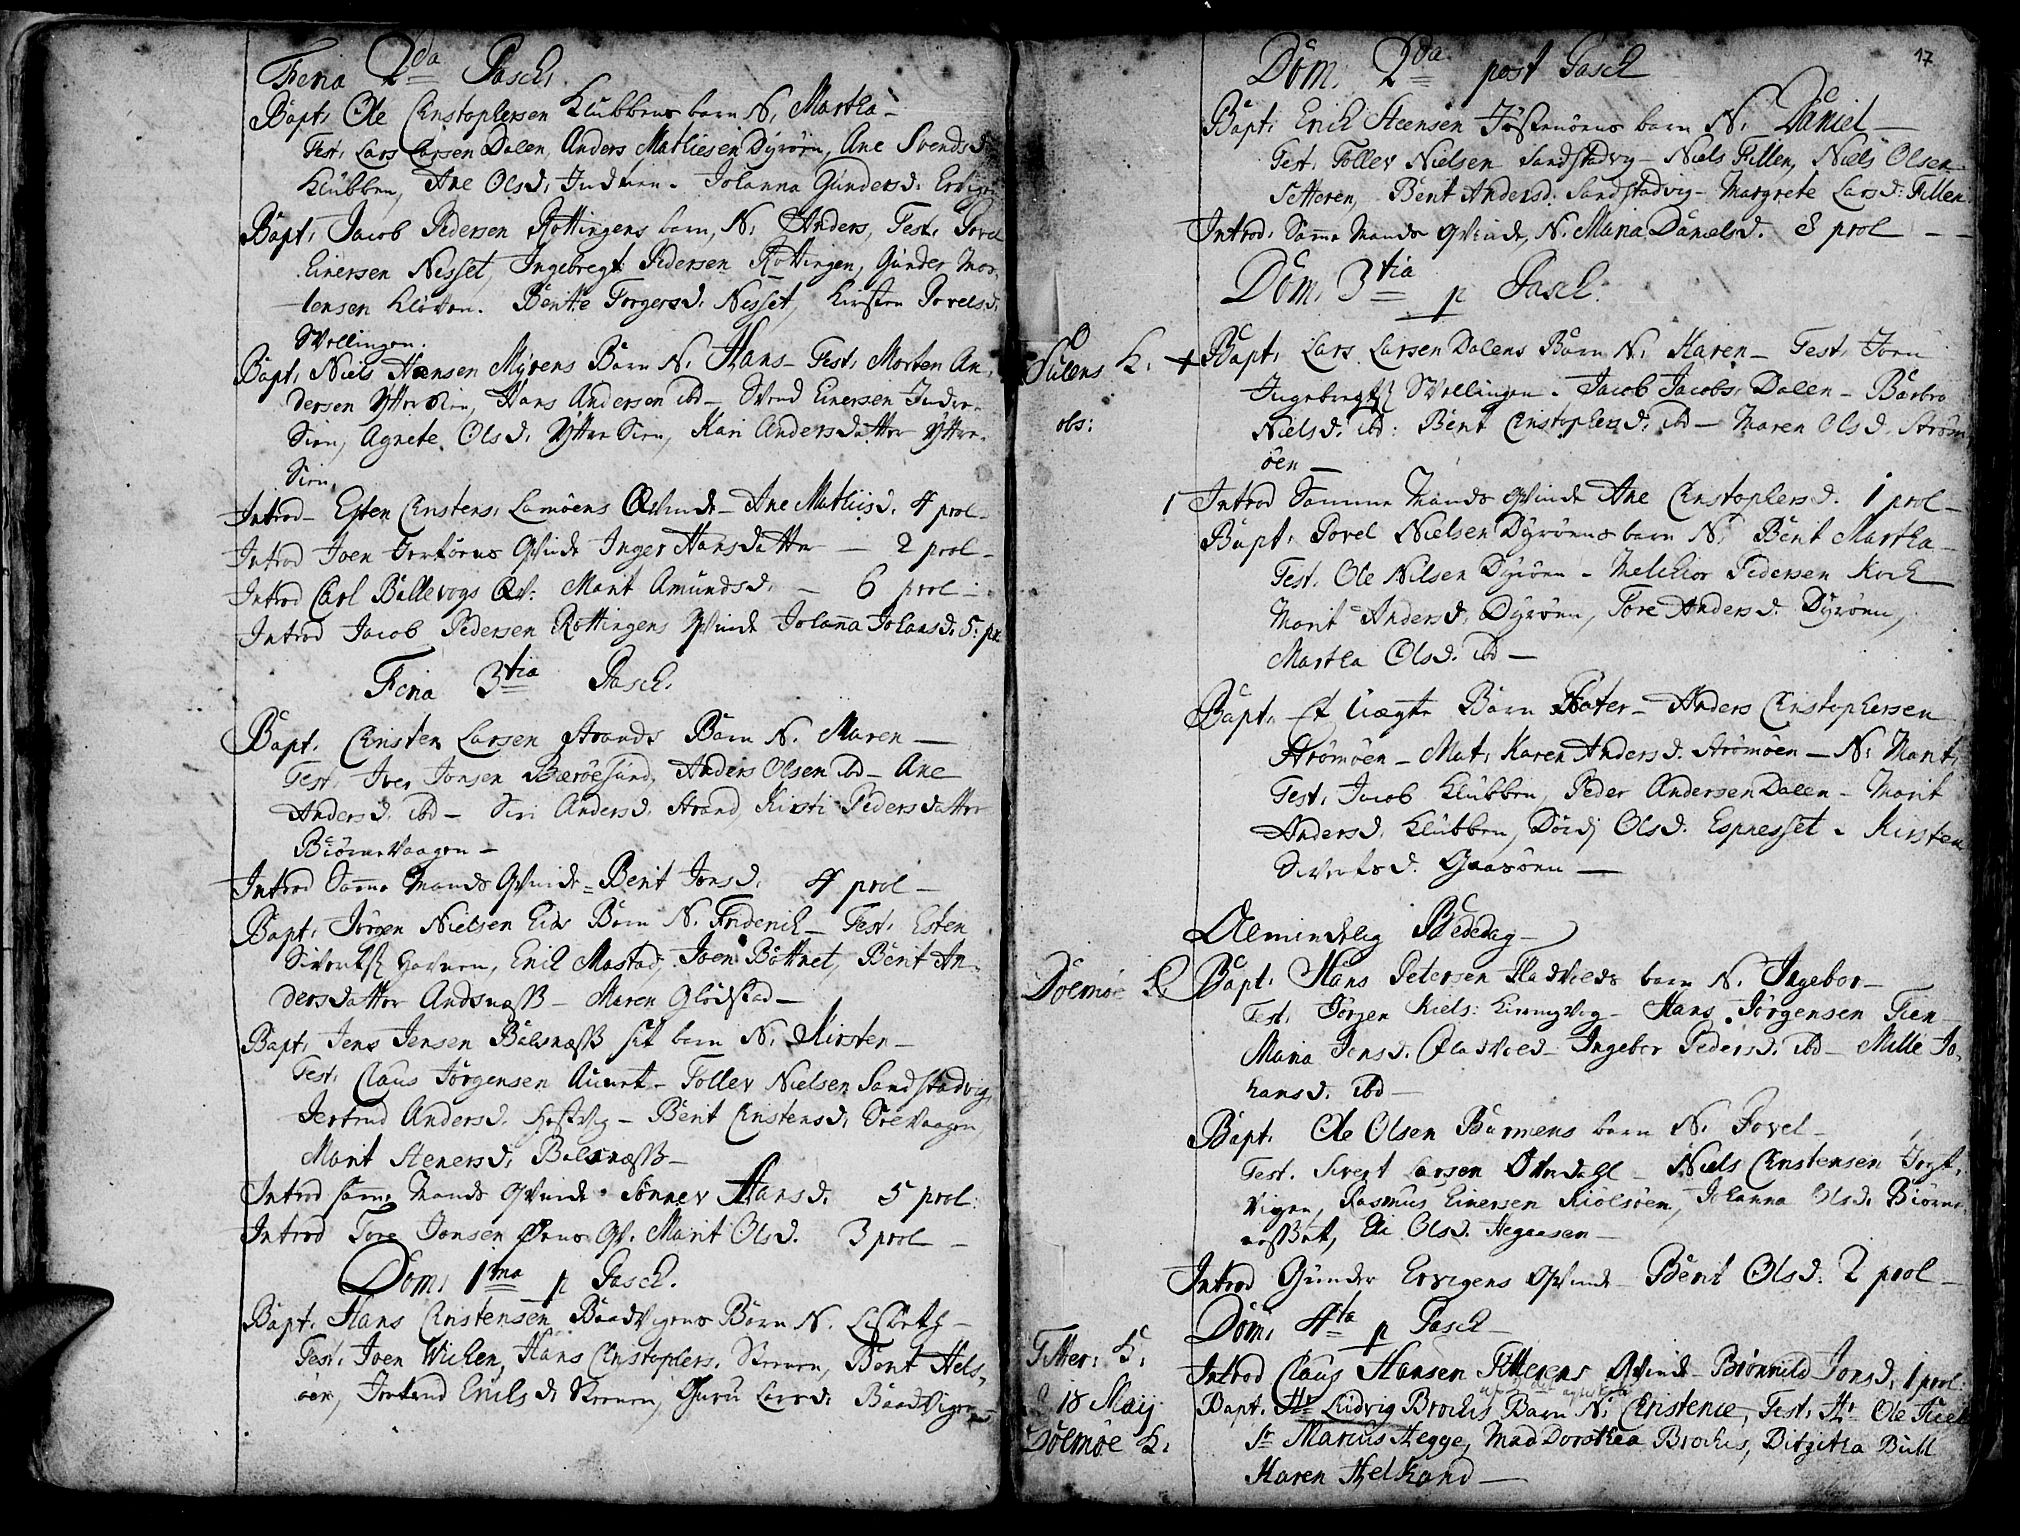 Feria 2da Pasch.
Bapt. Ole Christophersen Klubbens barn N. Martha –
Test. Lars Larsen Dalen, Anders Mathiesen Dyrøen, Ane Svendsd.
Klubben, Ane Olsd. Johanna Gundersd.
Bapt. Jacob Pedersen Rottingens barn, N. Anders, Test. Povel
Einersen Nesset, Ingebregt Pedersen Rottingen, Gunder Mor-
tensen Kløven. Beritte Torgersd. Nesset, Kirsten Povelsd.
Svellingen.
Bapt. Niels Hansen Myrens Barn N. Hans – Test. Morten An-
dersen Yttersien, Hans Andersen ibd – Svend Einersen Indre-
Sien, Agnete Olsd. Yttre Sien, Kari Andersdatter Yttre-
Sien.
Introd – Esten Christens. Lamøens Qvinde – Ane Mathiisd. 4 prol –
Introd Joen Qvinde Inger Hansdatter – 2 prol –
Introd Carl Ballevogs Qv: Marit Amundsd. – 6 prol –
Introd Jacob Pedersen Rottingens Qvinde Johanna Johansd. 5: pr.
Feria 3tia Pasch.
Bapt. Christen Larsen Strands Barn N. Maren –
Test. Iver Jonsen Bærøesund, Anders Olsen ibd – Ane
Andersd. ibd – Siri Andersd. Strand, Kirsti Pedersdatter
Biørnevaagen –
Introd Samme Mands Qvinde – Berit Jonsd. 4 prol –
Bapt. Jørgen Nielsen Eids Barn N. Friderich – Test. Esten
Havnen, Erich Mastad, Joen Bottnet, Berit An-
dersdatter Andsnæss – Maren Glødstad –
Bapt. Jens Jensen Balsnæss sit barn N. Kirsten –
Test. Claus Jørgensen Aunet – Tollev Nielsen Sandstadvig,
Jertrud Andersd. Hestvig – Berit Christensd. Soevaagen,
Marit Stenersd. Balsnæss –
Introd samme Mands Qvinde Sønnev Hansd. 5 prol:
Introd Tore Jonsen Qv. Marit Olsd. 3 prol –
Dom. 1ma p Pasch.
Bapt. Hans Christensen Baadvigens Barn N. Lisbeth –
Test. Joen Wichen, Hans Christophers. Steenen, Berit Hels-
øen, Jertrud Erichsd. Steenen, Guru Larsd. Baadvigen
17
Dom. 2da post Pasch
Bapt. Erich Steensen Jøstenøens barn N. Daniel –
Test. Tollev Nielsen Sandstadvig – Niels Fillen, Niels Olsen
Setteren, Berit Andersd. Sandstadvig – Margrete Larsd: Fillen
Introd. Samme Mands Qvinde, N. Maria Danielsd. 8 prol –
Dom. 3tia p Pasch.
Sulens K: Bapt. Lars Larsen Dalens Barn N. Karen – Test. Joen
Svellingen. Jacob Jacobs. Dalen – Barbro
obs: Nielsd. ibd: Berit Christophersd. ibd – Maren Olsd. Strøm-
øen –
1 Introd Samme Mands Qvinde Ane Christophersd. 1 prol –
Bapt. Povel Nielsen Dyrøens barn N. Berit Martha –
Test. Ole Nilsen Dyrøen – Melchior Pedersen Koch
Marit Andersd. Dyrøen, Tore Andersd. Dyrøen,
Martha Olsd. ibd –
Bapt. Et Uægte Barn Pater – Anders Christophersen
Strømøen – Mat. Karen Andersd. Strømøen – N. Marit.
Test. Jacob Klubben, Peder Andersen Dalen – Marit
Andersd. Klubben, Dordj Olsd. Espnesset – Kirsten
Sivertsd. Gaasøen –
Almindelig Bededag –
Dolmøe K. Bapt. Hans Petersen Fladvolds barn N. Ingebor –
Test. Jørgen Niels: Hans Jørgensen Tien –
Maria Jensd. Fladvold – Ingebor Pedersd. ibd – Mille Jo-
hansd. ibd –
Bapt. Ole Olsen Burmens barn N. Povel –
Test. Sivert Larsen Niels Christensen
Vigen, Rasmus Einersen Kiolsøen, Johanna Olsd. Biørn-
Eli Olsd. Hegaasen –
Introd Gunder Ervigens Qvinde – Berit Olsd: 2 prol –
Dom. 4ta p Pasch –
Fitter: K: Introd Claus Hansen Fitterens Qvinde – Brønnild Jonsd. 1 prol:
18 Maij Bapt. Hr. Ludvig Brochs Barn N. Christence, Test. Hr. Ole
Dolmøe K. Sr. Marcus Hegge, Mad Dorothea Brochs, Birgitha Bull
Karen Helkand –